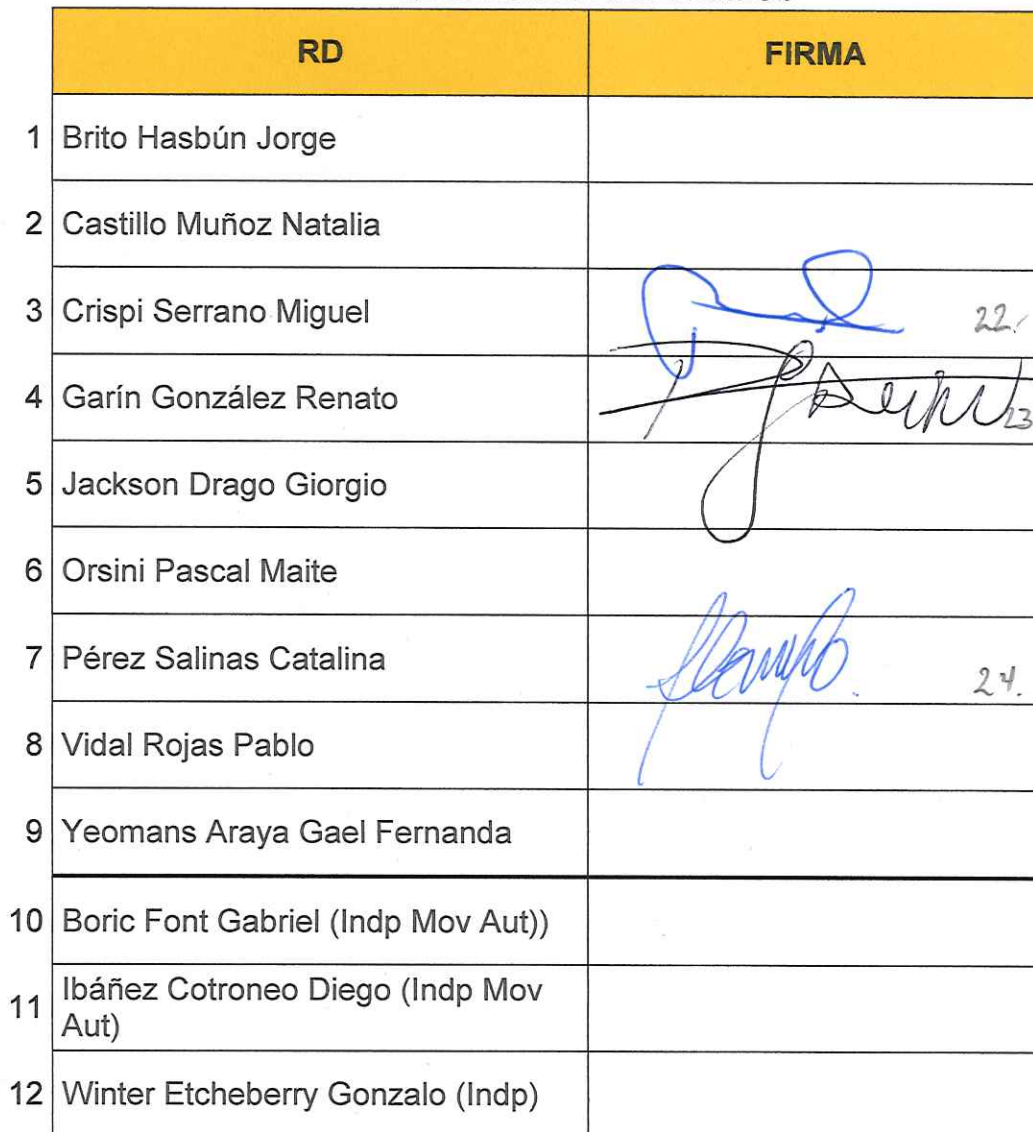 RD FIRMA
1 Brito Hasbún Jorge
2 Castillo Muñoz Natalia
3 Crispi Serrano Miguel 22.
4 Garín González Renato 23
5 Jackson Drago Giorgio
6 Orsini Pascal Maite
7 Pérez Salinas Catalina 24.
8 Vidal Rojas Pablo
9 Yeomans Araya Gael Fernanda
10 Boric Font Gabriel (Indp Mov Aut))
11 Ibáñez Cotroneo Diego (Indp Mov
Aut)
12 Winter Etcheberry Gonzalo (Indp)